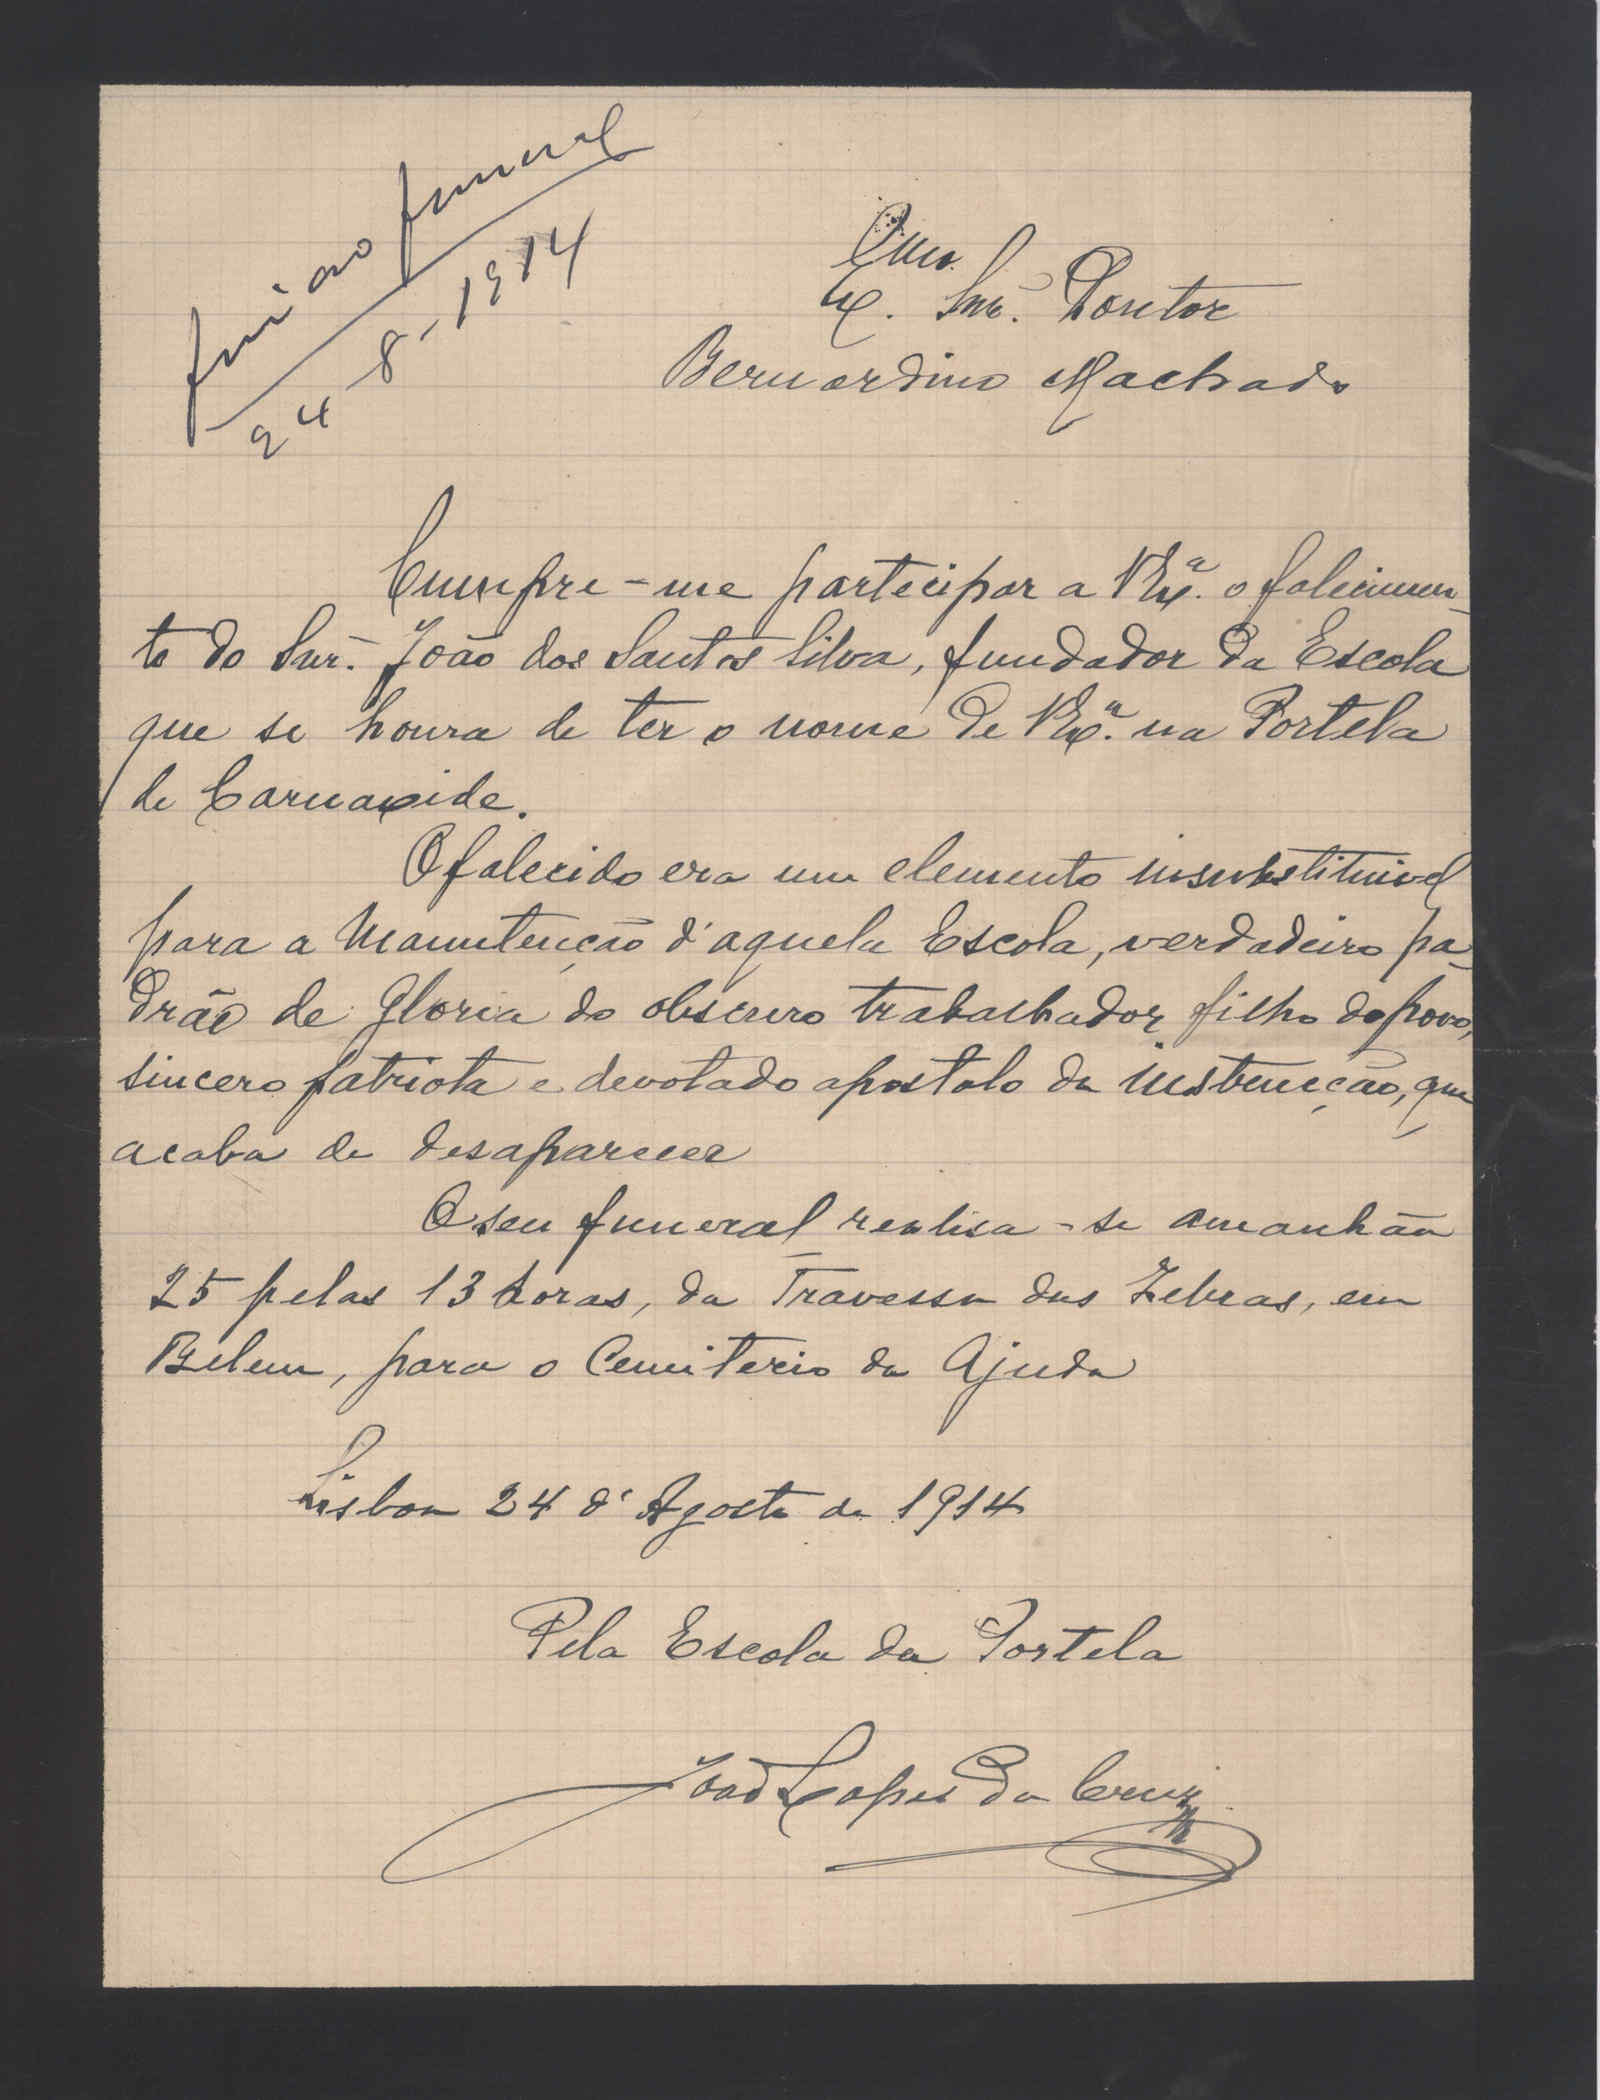 funeral
24-8-1914
Exmo.
Snr. Doutor
Bernardino Machado
Cumpre-me partecipar a V. Exª. o falecimen-
to do Snr. João dos Santos Silva, fundador da Escola
que se honra de ter o nome de V. Exª. na Portela
de Carnaxide.
O falecido era um elemento insubstituivel
para a Manutenção d'aquela Escola, verdadeiro pa-
drão de Gloria do obscuro trabalhador, filho do povo,
sincero patriota e devotado apostolo da instrucção, que
acaba de desaparecer
O seu funeral realisa-se amanhãn
25 pelas 13 horas, da Travessa das Zebras, em
Belem, para o Cemiterio da Ajuda
Lisboa 24 d'Agosto de 1914
Pela Escola da Portela
João Lopes da Cruz